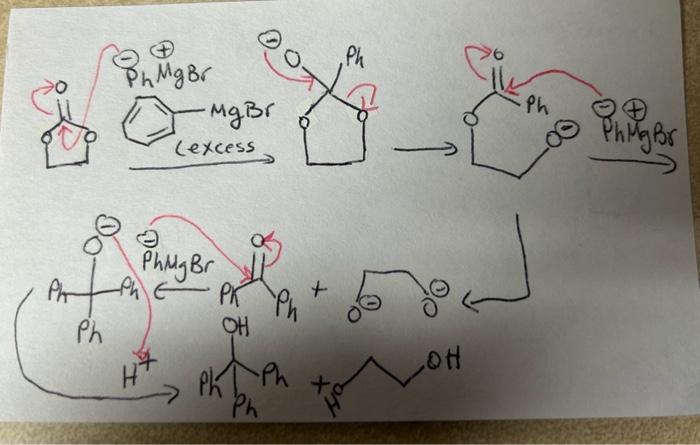 O
O O
⊖ ⊕
PhMgBr
MgBr
(excess
⊖
O Ph
O O
O
O Ph
O⊖
⊖ ⊕
PhMgBr
O⊖
Ph Ph
Ph
H+
⊖
PhMgBr
O
Ph Ph
+
O⊖ O⊖
OH
Ph Ph
Ph
+
HO OH